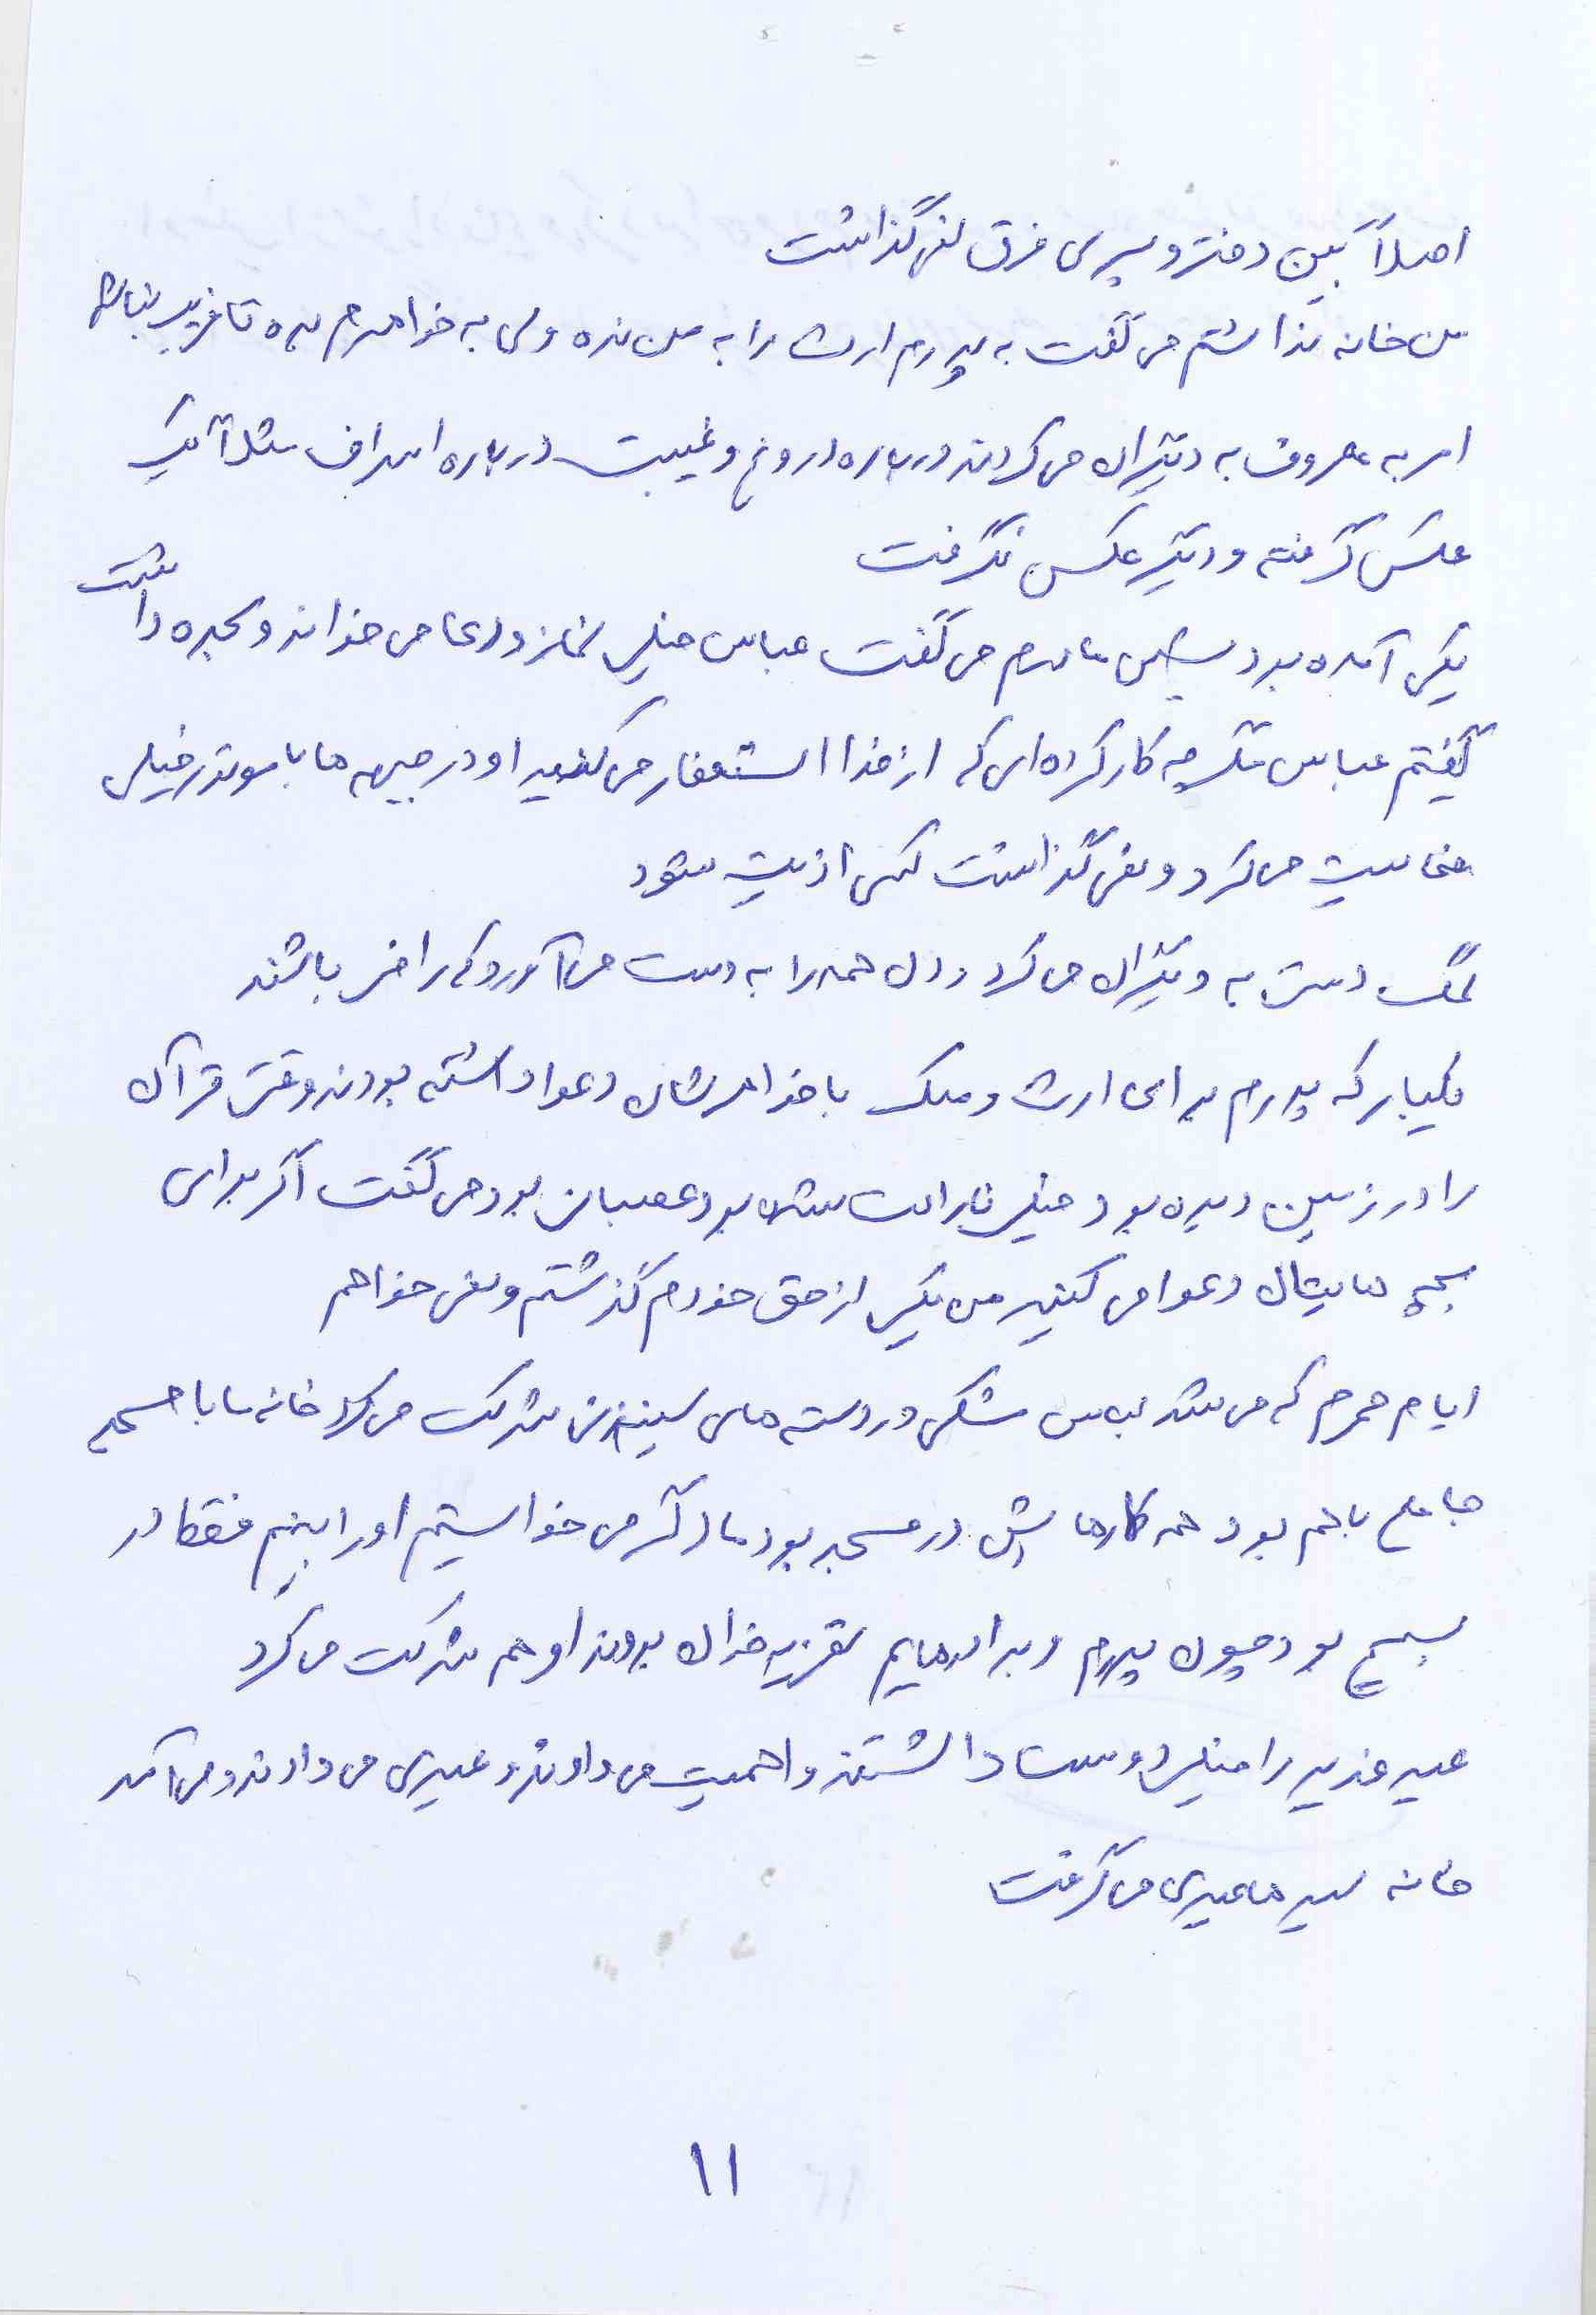 اصلاً بین دختر و پسری فرق نمی گذاشت
من خانه نداشتم می گفت به پدرم ارث را به من نده ولی به خواهرم بده تا غریب نباشد
امر به معروف به دیگران می کردند درباره دروغ و غیبت درباره اسراف مثلاً یک
عکس گرفته و دیگر عکس نگرفت
یکی آمده بود پیش مادرم می گفت عباس خیلی نماز و دعا می خواند و سجده داشت
گفتم عباس مگر چه کار کرده ای که از خدا استغفار می کنید او در جبهه ها با موتور خیلی
فعالیت می کرد و نمی گذاشت کسی اذیت شود
کمک دستی به دیگران می کرد و دل همه را به دست می آورد که راضی باشند
یکبار که پدرم برای ارث و ملک با خواهرشان دعوا داشته بودند وقتی قرآن
را در زمین دیده بود خیلی ناراحت شده بود عصبانی بود می گفت اگر برای
بچه هایتان دعوا می کنید من یکی از حق خودم گذشتم و نمی خواهم
ایام محرم که می شد لباس مشکی در دسته های سینه زنی شرکت می کرد خانه ما با مسجد
جامع باهم بود همه کارهایش در مسجد بود ما اگر می خواستیم او را ببینیم فقط در
بسیج بود چون پدرم و برادرهایم تعزیه خوان بودند او هم شرکت می کرد
عید غدیر را خیلی دوست داشتند و اهمیت می دادند و عیدی می دادند و می آمد
خانه سید ها عیدی می گرفت
۱۱